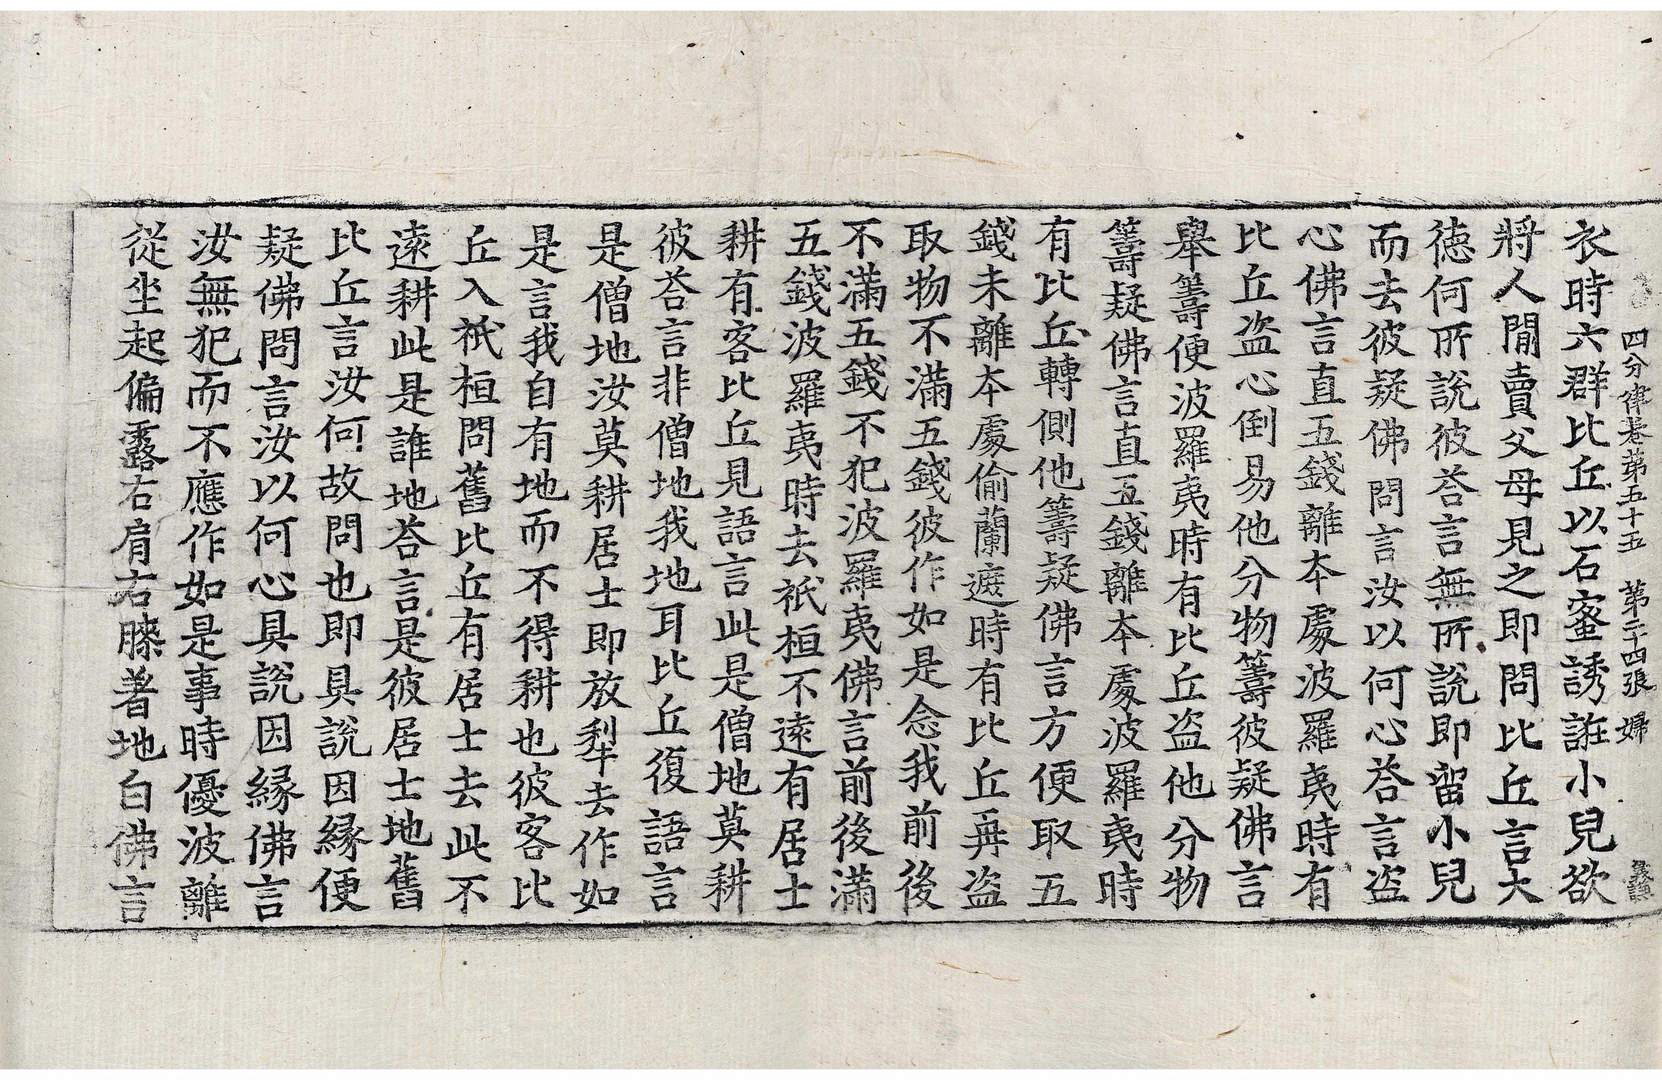 四分律卷第五十五 第二十四張 婦
衣時六群比丘以石蜜誘誑小兒欲
將人閒賣父母見之即問比丘言大
德何所說彼荅言無所說即留小兒
而去彼疑佛問言汝以何心荅言盜
心佛言直五錢離本處波羅夷時有
比丘盜心倒易他分物籌彼疑佛言
舉籌便波羅夷時有比丘盜他分物
籌疑佛言直五錢離本處波羅夷時
有比丘轉側他籌疑佛言方便取五
錢未離本處偷蘭遮時有比丘再盜
取物不滿五錢彼作如是念我前後
不滿五錢不犯波羅夷佛言前後滿
五錢波羅夷時去祇桓不遠有居士
耕有客比丘見語言此是僧地莫耕
彼荅言非僧地我地耳比丘復語言
是僧地汝莫耕居士即放犁去作如
是言我自有地而不得耕也彼客比
丘入祇桓問舊比丘有居士去此不
遠耕此是誰地荅言是彼居士地舊
比丘言汝何故問也即具說因緣便
疑佛問言汝以何心具說因緣佛言
汝無犯而不應作如是事時優波離
從坐起偏露右肩右膝著地白佛言